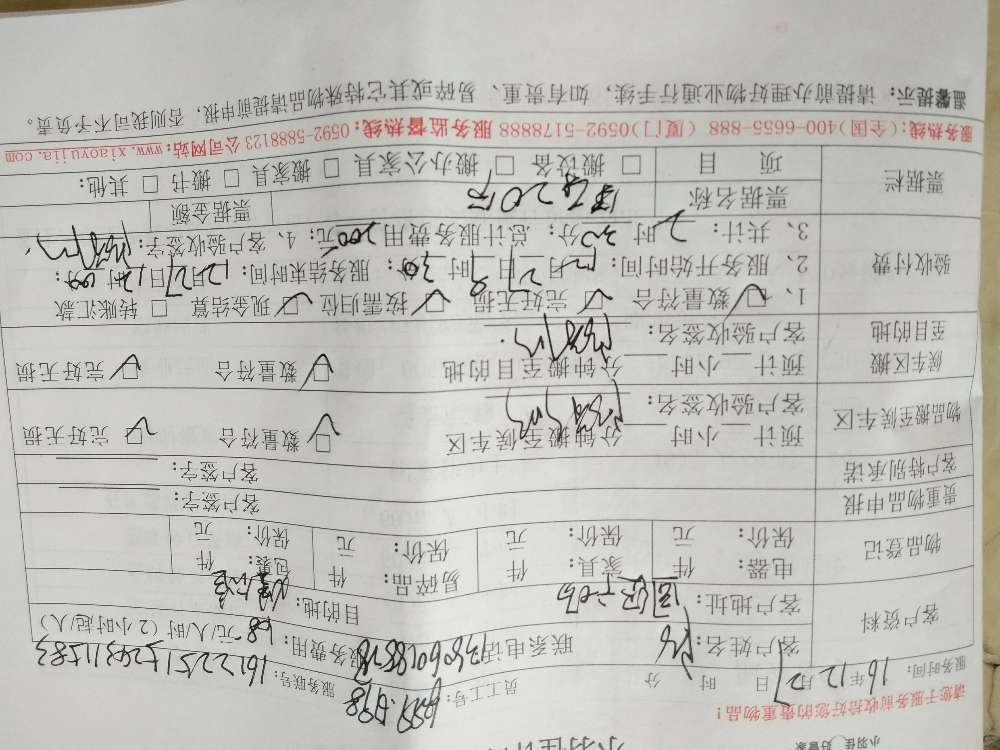 小羽佳 好管家
请您于服务前收拾好您的贵重物品!
服务时间: 16年12月27日 时 分 员工工号: 服务联号: 161225152431583
客户资料
客户姓名: 陈 联系电话 服务费用: 68元/人/时 (2小时起/人)
客户地址: 目的地:
物品登记
电器: 件 家具: 件 易碎品: 件 包裹: 件
保价: 元 保价: 元 保价: 元 保价: 元
贵重物品申报 客户签字:
客户特别承诺 客户签字:
物品搬至候车区
预计 小时 分钟搬至候车区 ☑ 数量符合 ☑ 完好无损
客户验收签名:
候车区搬至目的地
预计 小时 分钟搬至目的地 ☑ 数量符合 ☑ 完好无损
客户验收签名:
验收付费
1、☑ 数量符合 ☑ 完好无损 ☑ 按需归位 ☑ 现金结算 □ 转账汇款
2、服务开始时间: 12月27日9时30分; 服务结束时间: 12月27日12时00分
3、共计: 2时30分; 总计服务费用200元; 4、客户验收签字:
票据栏
票据名称 20元 票据金额
项 目 □ 搬设备 □ 搬办公家具 □ 搬家具 □ 搬书 □ 其他:
服务热线: (全国)400-6655-888 (厦门)0592-5178888 服务监督热线: 0592-5888123 公司网站: www.xiaoyujia.com
温馨提示: 请提前办理好物业通行手续, 如有贵重、易碎或其它特殊物品请提前申报, 否则我司不予负责。